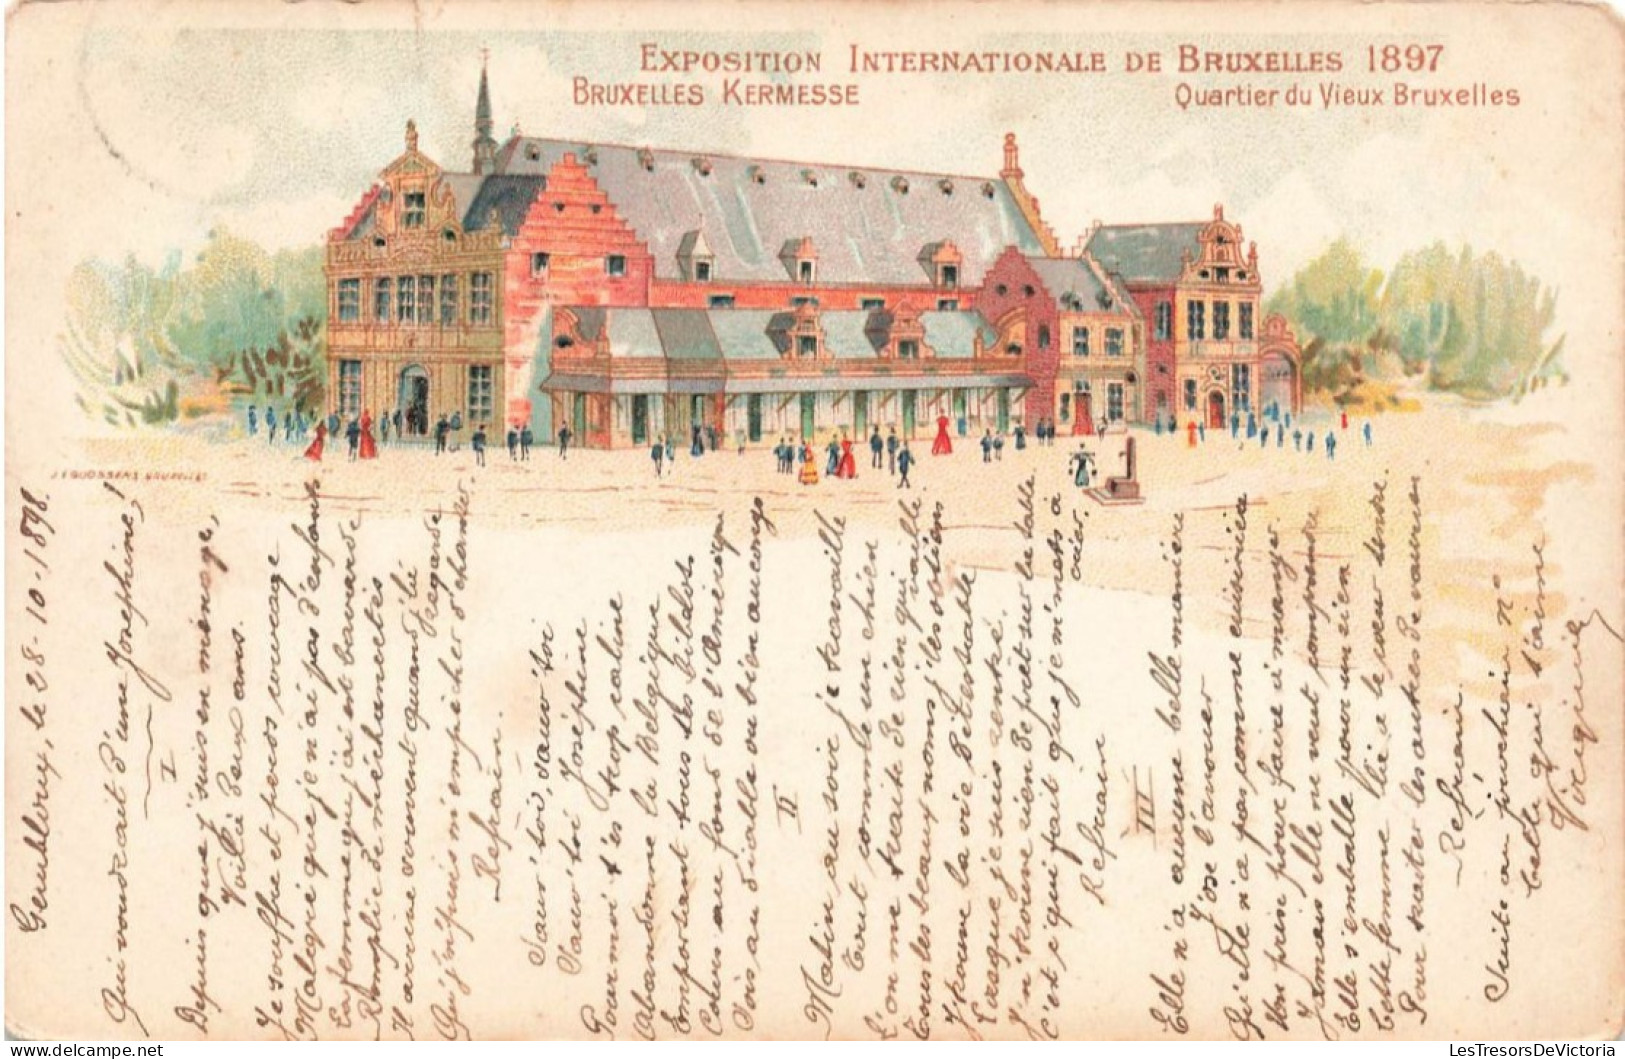 EXPOSITION INTERNATIONALE DE BRUXELLES 1897
BRUXELLES KERMESSE
Quartier du Vieux Bruxelles
J. F. GOOSSENS BRUXELLES
le 28-10-1898.
Qui voudrait d'une Josephine!
I
Depuis que j'suis en ménage,
Voilà deux ans.
Je souffre et perds courage
Malgré que je n'ai pas d'enfants
La femme que j'ai est bavarde
Remplie de méchancetés
Il arrive souvent quand j'lé
regarde
Qu'j'n'puis m'empêcher d'chanter.
Refrain.
Sauv' toi, sauv' toi
Sauv' toi Joséphine
Pour moi t'es trop câline
Abandonne la Belgique
Emportant tous tes bibelots
Cours au fond de l'Amérique
Vois au diable ou bien au congo
II
Matin au soir je travaille
Tout comme un chien
L'on me traite de rien qui vaille
Tous les beaux noms j'les obtiens
J'trouve la vie détestable
Lorsque je suis rentré.
J'n'trouve rien de prêt sur la table
C'est c'qui fait que je m'mets à
crier.
Refrain
III
Elle n'a aucune belle manière
J'ose l'avouer
Qu'elle n'a pas comme cuisinière
Mon pris pour faire à manger
Jamais elle ne veut comprendre
Elle s'emballe pour un rien
Cette femme là a le cœur tendre
Pour traiter les autres de vaurien
Refrain
Suite au prochain n°
Celle qui t'aime
Virginie
LesTresorsDeVictoria